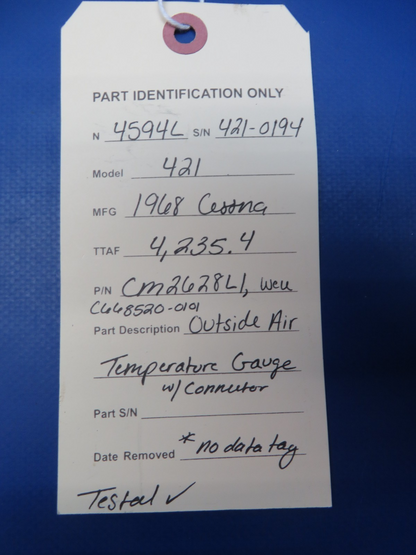 PART IDENTIFICATION ONLY
N 4594L S/N 421-0194
Model 421
MFG 1968 Cessna
TTAF 4,235.4
P/N CM2628L1, WCU
C668520-0101
Part Description Outside Air
Temperature Gauge
w/ Connector
Part S/N
Date Removed * no data tag
Tested ✓